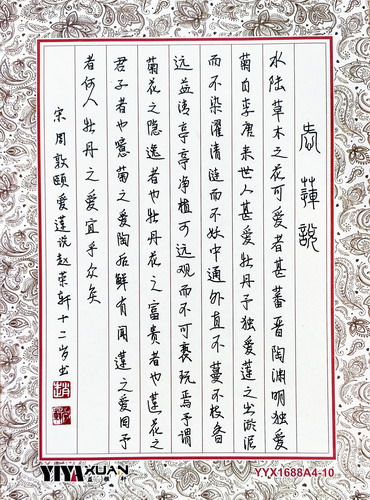 爱蓮說
水陆草木之花可爱者甚蕃晋陶渊明独爱
菊自李唐来世人甚爱牡丹予独爱莲之出淤泥
而不染濯清涟而不妖中通外直不蔓不枝香
远益清亭亭净植可远观而不可亵玩焉予谓
菊花之隐逸者也牡丹花之富贵者也莲花之
君子者也噫菊之爱陶后鲜有闻莲之爱同予
者何人牡丹之爱宜乎众矣
宋周敦颐爱莲说赵荣轩十二岁书
趙
YIYAXUAN
YYX1688A4-10